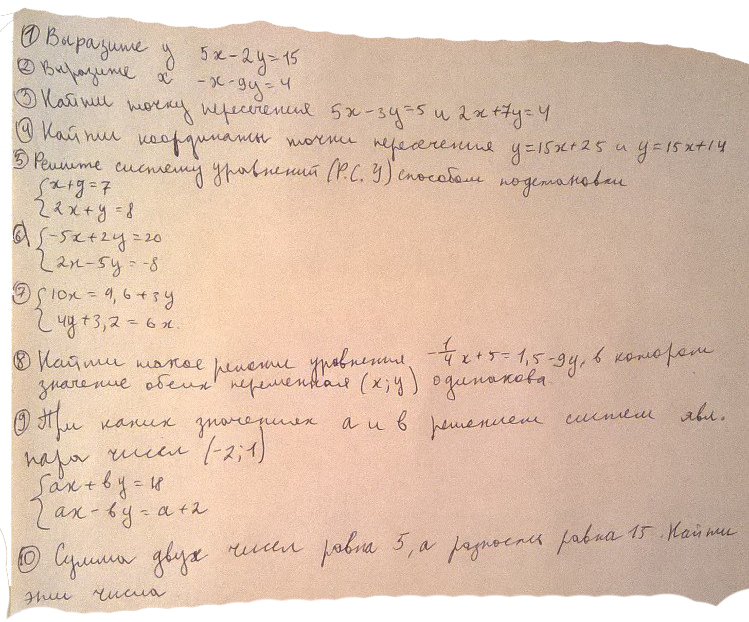 ① Выразите y 5x-2y=15
② Выразите x -x-9y=4
③ Найти точку пересечения 5x-3y=5 и 2x+7y=4
④ Найти координаты точки пересечения y=15x+25 и y=15x+14
⑤ Решите систему уравнений (Р.С.У) способом подстановки
{x+y=7
{2x+y=8
⑥ {-5x+2y=20
{2x-5y=-8
⑦ {10x=4,6+3y
{4y+3,2=6x.
⑧ Найти такое решение уравнения -1/4x+5=1,5-9y, в котором
значение обеих переменная (x;y) одинакова
⑨ При каких значениях a и в решением систем явл.
пара чисел (-2;1)
{ax+вy=18
{ax-вy=a+2
⑩ Сумма двух чисел равна 5, а разность равна 15. Найти
эти числа